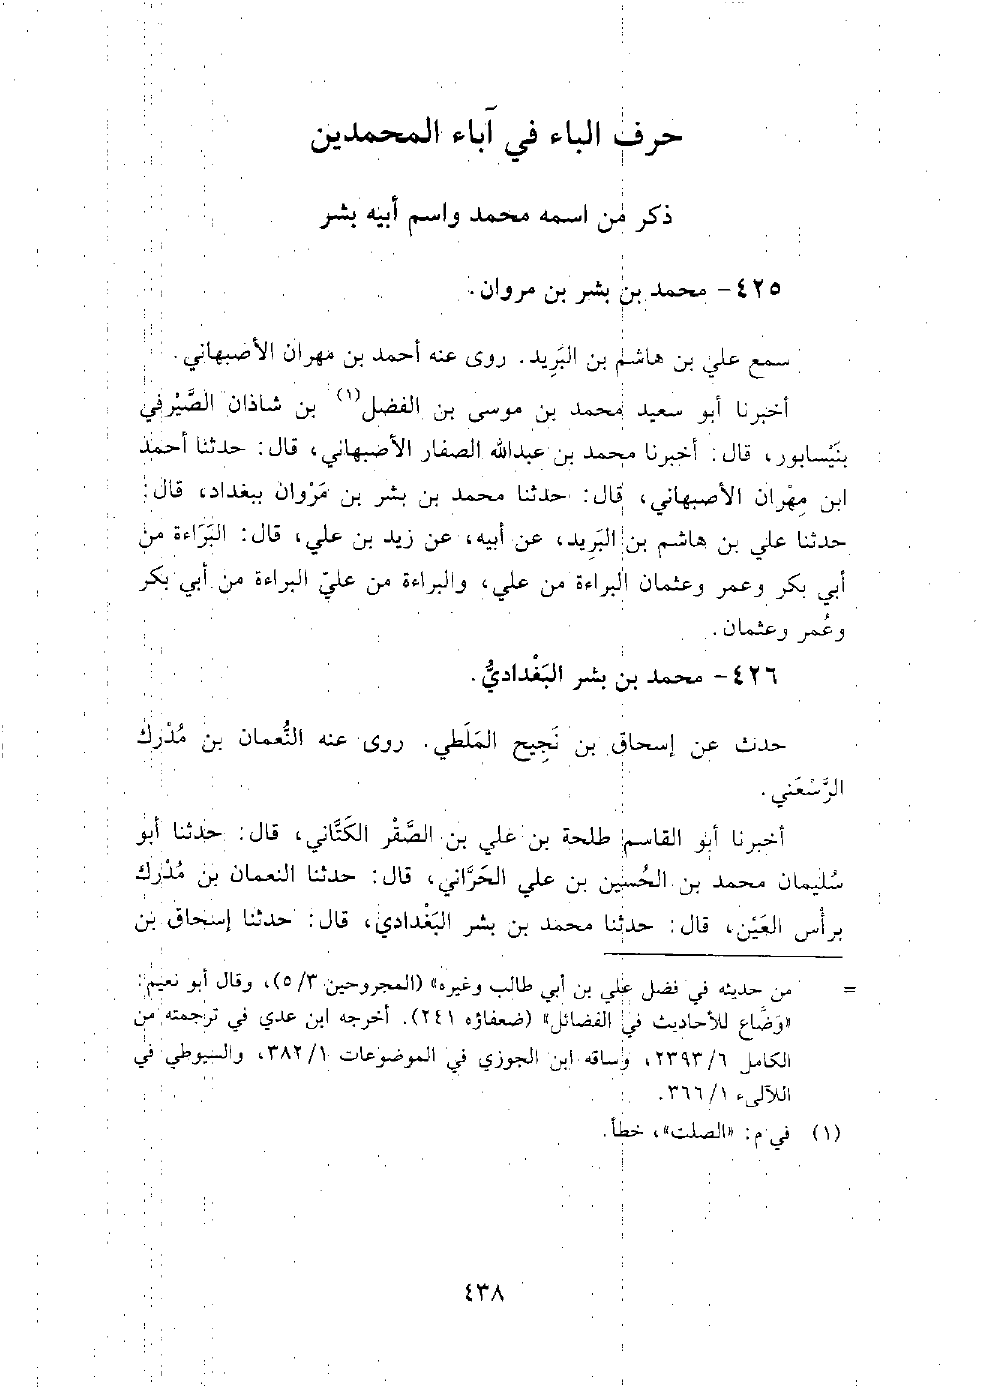 حرف الباء في آباء المحمدين
ذكر من اسمه محمد واسم أبيه بشر
٤٢٥- محمد بن بشر بن مروان.
سمع علي بن هاشم بن البَرِيد. روى عنه أحمد بن مهران الأصبهاني.
أخبرنا أبو سعيد محمد بن موسى بن الفضل(١) بن شاذان الصَّيْرفي
بنَيْسابور، قال: أخبرنا محمد بن عبدالله الصفار الأصبهاني، قال: حدثنا أحمد
ابن مِهْران الأصبهاني، قال: حدثنا محمد بن بشر بن مَرْوان ببغداد، قال:
حدثنا علي بن هاشم بن البَرِيد، عن أبيه، عن زيد بن علي، قال: البَرَاءة من
أبي بكر وعمر وعثمان البراءة من علي، والبراءة من عليّ البراءة من أبي بكر
وعُمر وعثمان.
٤٢٦- محمد بن بشر البَغْداديُّ.
حدث عن إسحاق بن نَجِيح المَلَطي. روى عنه النُّعمان بن مُدْرك
الرَّسْعَني.
أخبرنا أبو القاسم طلحة بن علي بن الصَّقْر الكَتَّاني، قال: حدثنا أبو
سُليمان محمد بن الحُسين بن علي الحَرَّاني، قال: حدثنا النعمان بن مُدْرك
برأس العَيْن، قال: حدثنا محمد بن بشر البَغْدادي، قال: حدثنا إسحاق بن
= من حديثه في فضل علي بن أبي طالب وغيره» (المجروحين ٣/ ٥)، وقال أبو نعيم:
«وَضَّاع للأحاديث في الفضائل» (ضعفاؤه ٢٤١). أخرجه ابن عدي في ترجمته من
الكامل ٦/ ٢٣٩٣، وساقه ابن الجوزي في الموضوعات ١/ ٣٨٢، والسيوطي في
اللآلىء ١/ ٣٦٦.
(١) في م: «الصلت»، خطأ.
٤٣٨